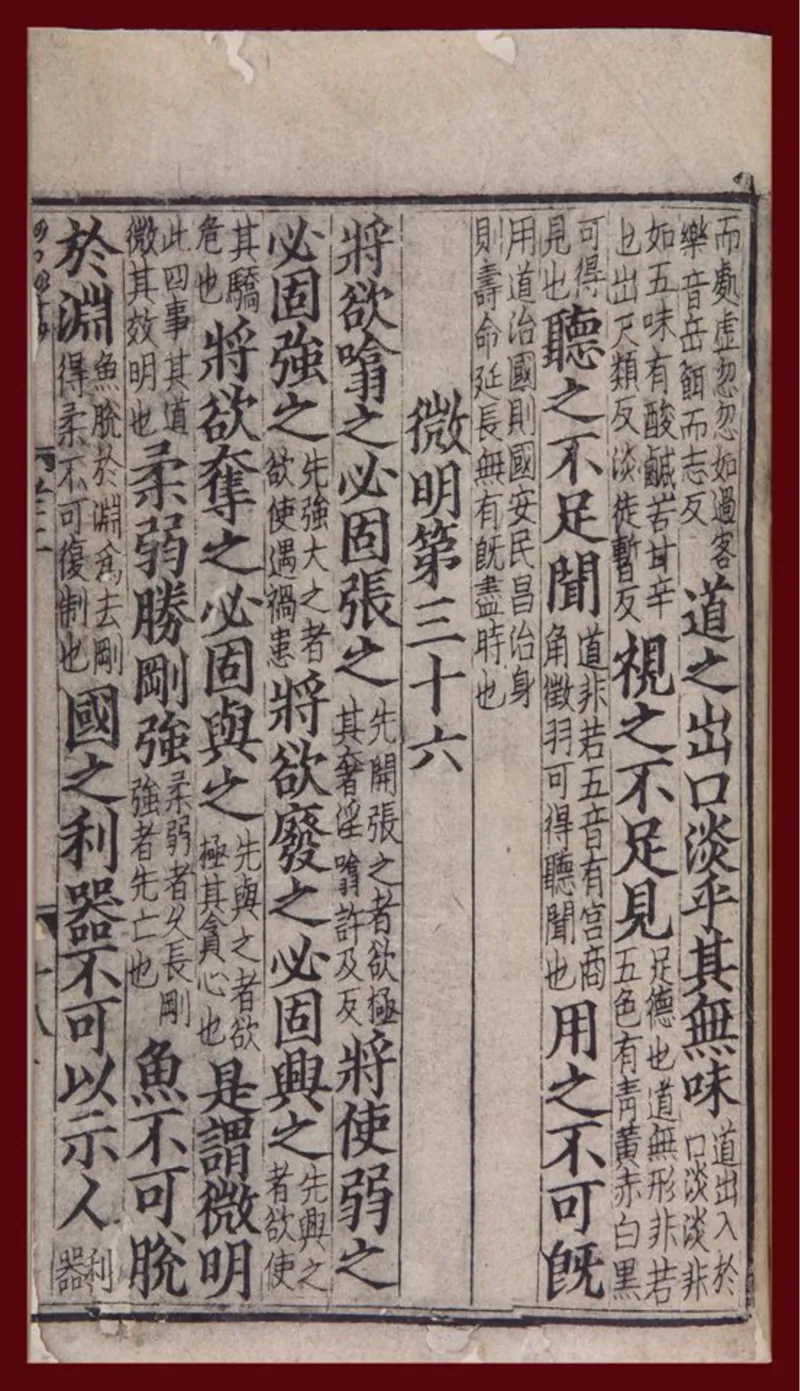 而處虛忽忽如過客樂音岳餌而志反道之出口淡乎其無味道出入於口淡淡非
如五味有酸鹹苦甘辛也出尺類反淡徒暫反視之不足見足德也道無形非若五色有靑黃赤白黑
可得見也聽之不足聞道非若五音有宮商角徵羽可得聽聞也用之不可旣
用道治國則國安民昌治身則壽命延長無有旣盡時也
微明第三十六
將欲噏之必固張之先開張之者欲極其奢淫噏許及反將使弱之
必固強之先強大之者欲使遇禍患將欲廢之必固興之先興之者欲使
其驕危也將欲奪之必固與之先與之者欲極其貪心也是謂微明
此四事其道微其效明也柔弱勝剛強柔弱者久長剛強者先亡也魚不可脫
於淵魚脫於淵爲去剛得柔不可復制也國之利器不可以示人利器